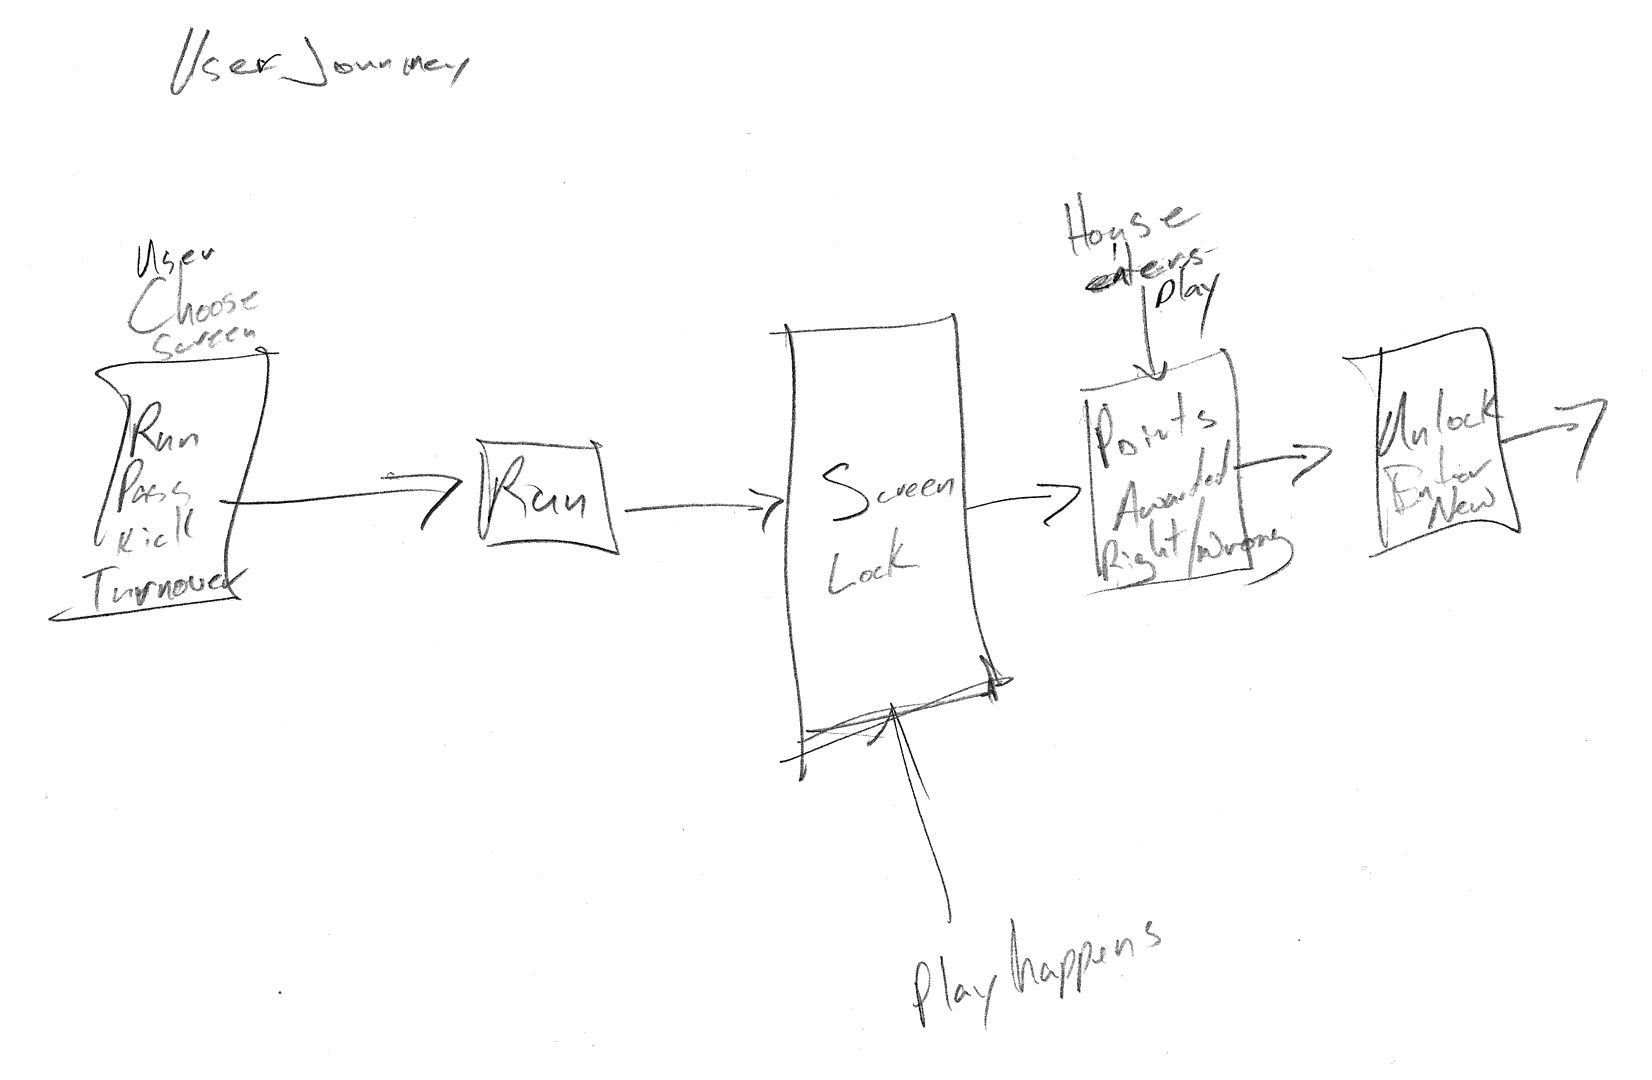 User Journey
User
Choose
Screen
Run
Pass
Kick
Turnover
Run
Screen
Lock
Play happens
House
enters
play
Points
Awarded
Right/Wrong
Unlock
Enter
New